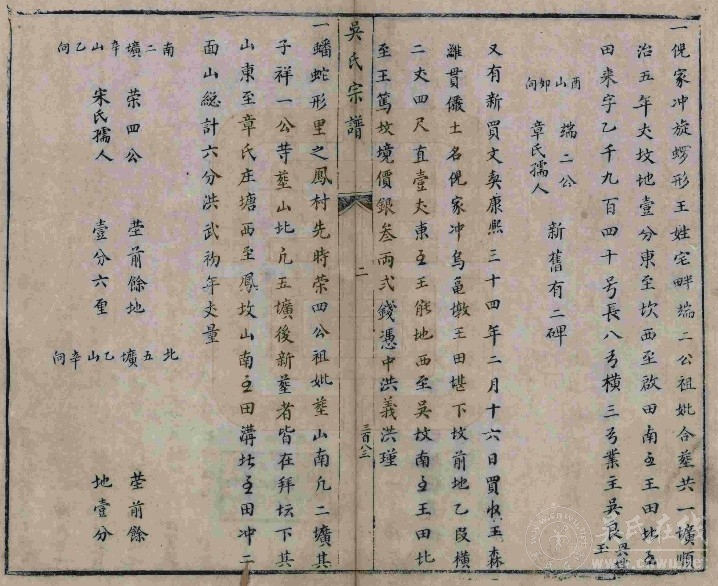 一倪家冲旋螺形王姓宅畔端二公祖妣合塟共一壙順
治五年丈坟地壹分東至坎西至啟田南至王田北至
田来字乙千九百四十号長八弓横三弓業主吳良玉 吳世
酉山卯向
端二公
章氏孺人
新舊有二碑
又有新買文契康熙三十四年二月十六日買収王森
濰貫儀土名倪家冲烏龜墩王田堪下坟前地乙段横
二丈四尺直壹丈東至王能地西至吴坟南至王田北
至王篤坟境價銀叁両弍錢憑中洪義洪瑾
吳氏宗譜
二
三百八三
一蟠蛇形里之鳳村先時荣四公祖妣塟山南凢二壙其
子祥一公䓁塟山北凢五壙後新塟者皆在拜坛下其
山東至章氏庄塘西至鳳坟山南至田溝北至田冲二
面山総計六分洪武初年丈量
南二壙辛山乙向
荣四公
宋氏孺人
茔前餘地
壹分六厘
北五壙乙山辛向
茔前餘
地壹分
吴氏在线